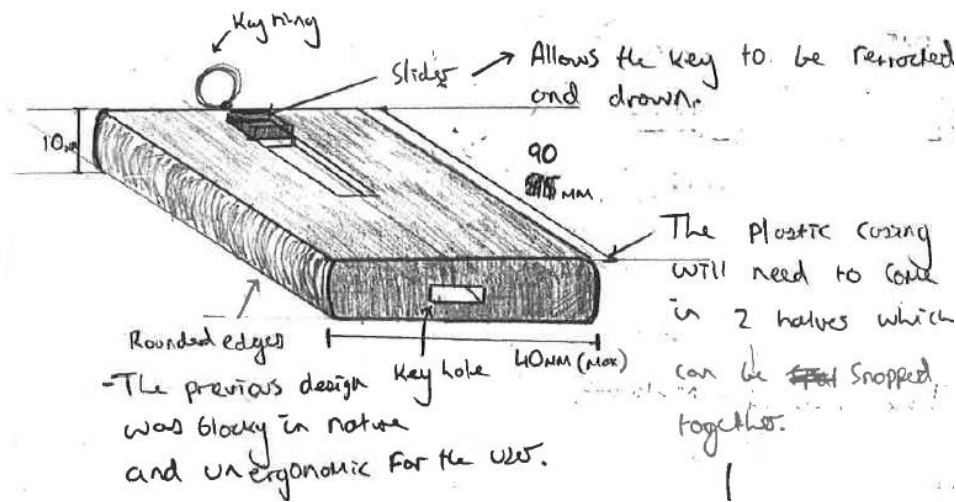 Key ring
Slider → Allows the key to be retracted
and drawn.
10mm
90
mm
The plastic casing
will need to come
in 2 halves which
can be snapped
together.
Rounded edges
Key hole
40mm (Max)
-The previous design
was blocky in nature
and unergonomic for the user.